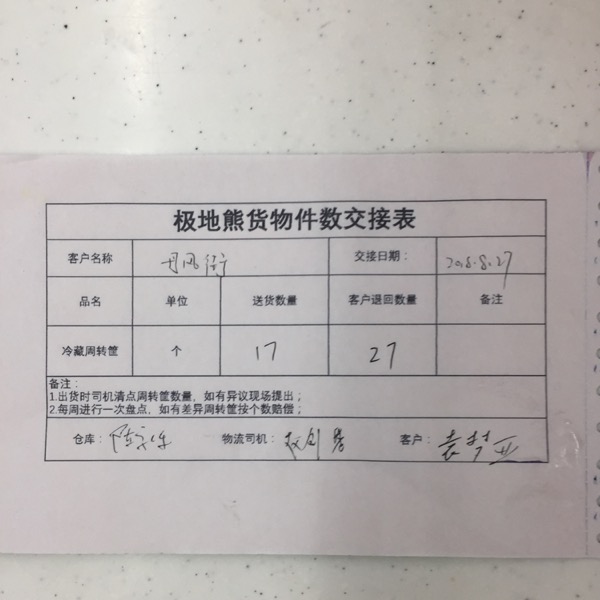 极地熊货物件数交接表
客户名称 丹凤街 交接日期： 2018.8.27
品名 单位 送货数量 客户退回数量 备注
冷藏周转筐 个 17 27
备注：
1.出货时司机清点周转筐数量，如有异议现场提出；
2.每周进行一次盘点，如有差异周转筐按个数赔偿；
仓库： 物流司机： 客户： 袁梦亚